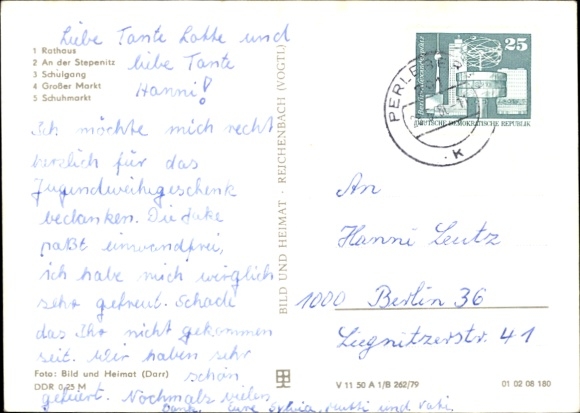 Liebe Tante Lotte und
liebe Tante
Hanni!
1 Rathaus
2 An der Stepenitz
3 Schulgang
4 Großer Markt
5 Schuhmarkt
Ich möchte mich recht
herzlich für das
Jugendweihegeschenk
bedanken. Die Jake
paßt einwandfrei,
ich habe mich wirglich
sehr gefreut. Schade
das Ihr nicht gekommen
seit. Wir haben sehr
schön
gefeiert. Nochmals vielen
Dank. Eure Sylvia, Mutti und Vati.
Foto: Bild und Heimat (Darr)
DDR 0,25 M
BILD UND HEIMAT · REICHENBACH (VOGTL)
25
DEUTSCHE DEMOKRATISCHE REPUBLIK
PERLEBERG
K
An
Hanni Leutz
1000 Berlin 36
Liegnitzerstr. 41
V 11 50 A 1/B 262/79
01 02 08 180